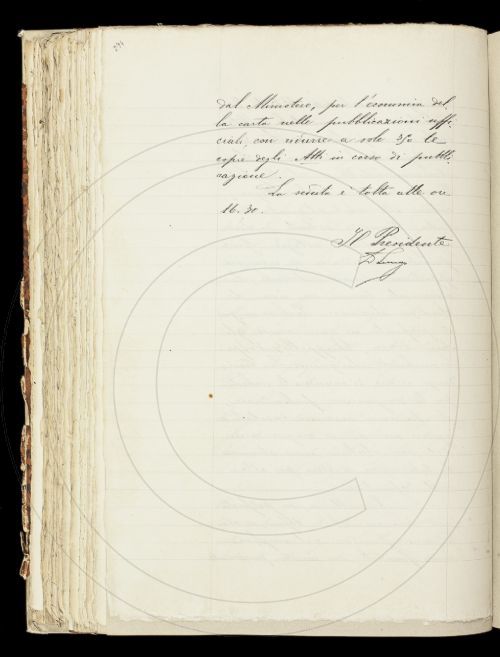 dal Ministero, per l'economia del-
la carta nelle pubblicazioni uffi-
ciali, con ridurre a sole 350 le
copie degli Atti in corso di pubbli-
cazione.
La seduta è tolta alle ore
16.30.
Il Presidente